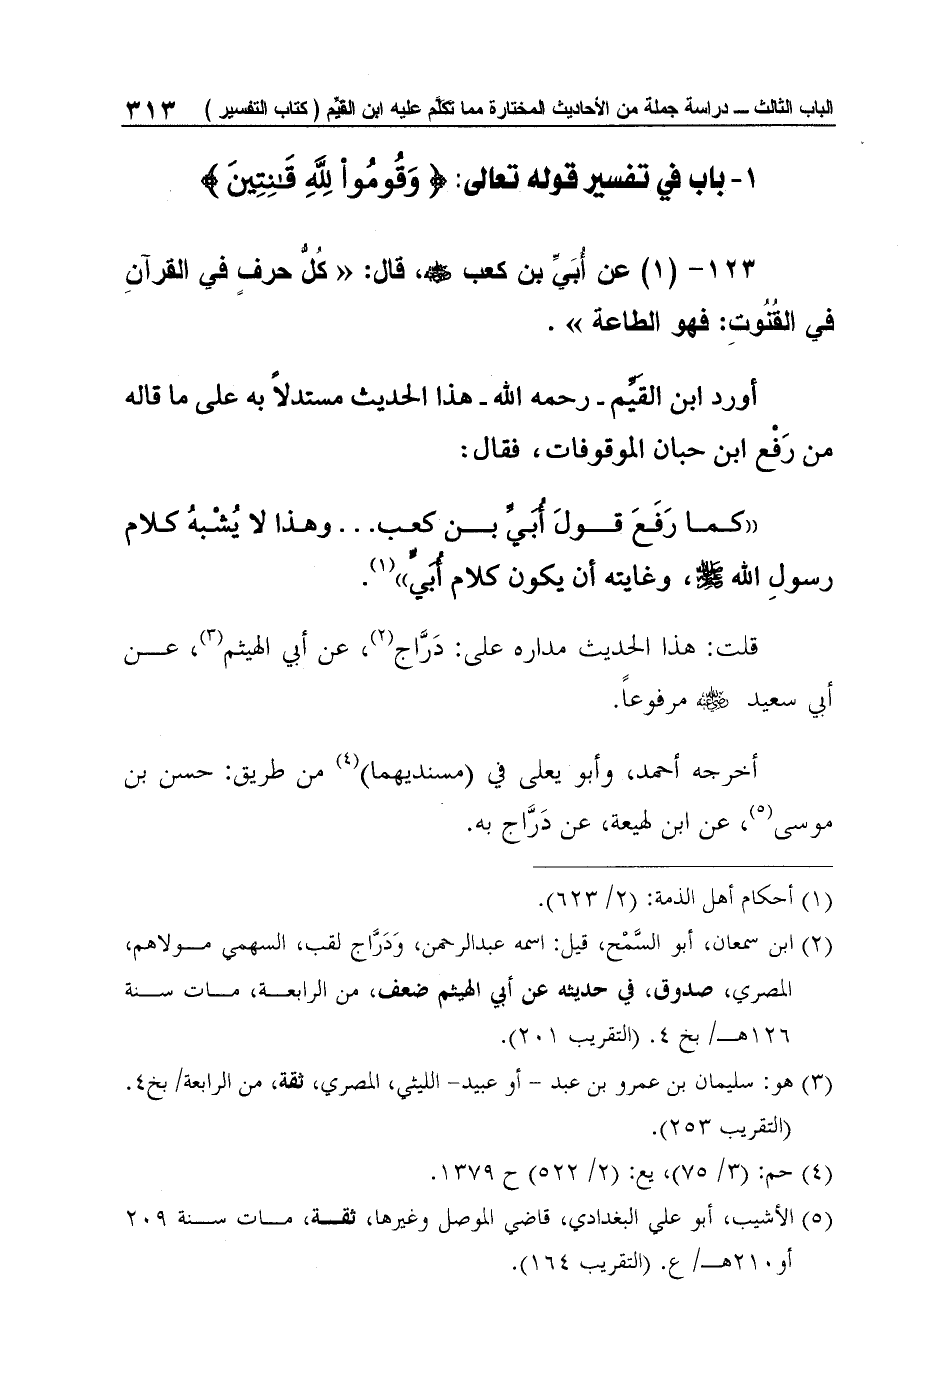 الباب الثالث ــ دراسة جملة من الأحاديث المختارة مما تكلَّم عليه ابن القيِّم ( كتاب التفسير ) ٣١٣
١- باب في تفسير قوله تعالى: ﴿ وَقُومُواْ لِلَّهِ قَـٰنِتِينَ ﴾
١٢٣- (١) عن أُبَيِّ بن كعب ﷺ، قال: « كلُّ حرفٍ في القرآنِ
في القُنُوتِ: فهو الطاعة » .
أورد ابن القَيِّم ـ رحمه الله ـ هذا الحديث مستدلاً به على ما قاله
من رَفْع ابن حبان الموقوفات، فقال:
«كـمـا رَفَعَ قـولَ أُبَيِّ بـن كعب... وهـذا لا يُشْبهُ كلام
رسولِ الله ﷺ، وغايته أن يكون كلام أُبَيٍّ»(١).
قلت: هذا الحديث مداره على: دَرَّاج(٢)، عن أبي الهيثم(٣)، عـن
أبي سعيد ﵁ مرفوعاً.
أخرجه أحمد، وأبو يعلى في (مسنديهما)(٤) من طريق: حسن بن
موسى(٥)، عن ابن لهيعة، عن دَرَّاج به.
(١) أحكام أهل الذمة: (٢/ ٦٢٣).
(٢) ابن سمعان، أبو السَّمْح، قيل: اسمه عبدالرحمن، وَدَرَّاج لقب، السهمي مـولاهم،
المصري، صدوق، في حديثه عن أبي الهيثم ضعف، من الرابعـة، مـات سـنة
١٢٦هـ/ بخ ٤. (التقريب ٢٠١).
(٣) هو: سليمان بن عمرو بن عبد - أو عبيد- الليثي، المصري، ثقة، من الرابعة/ بخ٤.
(التقريب ٢٥٣).
(٤) حم: (٣/ ٧٥)، يع: (٢/ ٥٢٢) ح ١٣٧٩.
(٥) الأشيب، أبو علي البغدادي، قاضي الموصل وغيرها، ثقـة، مـات سـنة ٢٠٩
أو٢١٠هـ/ ع. (التقريب ١٦٤).